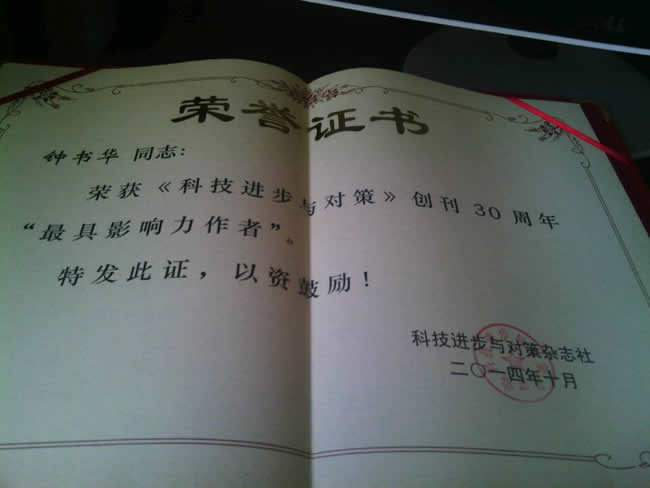 荣誉证书
钟书华 同志:
荣获《科技进步与对策》创刊 30 周年
“最具影响力作者”。
特发此证，以资鼓励！
科技进步与对策杂志社
二〇一四年十月